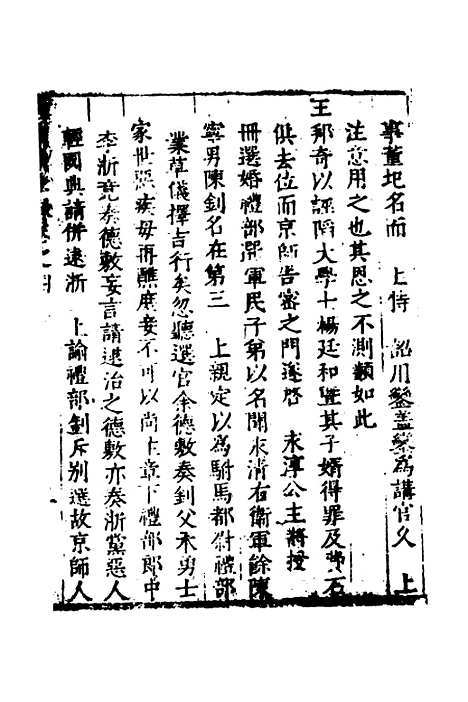 事董圯名而　上特　詔用鑾盖鑾爲講官久　上
注意用之也其恩之不測類如此
王邦奇以誣陷大學士楊廷和曁其子婿得罪及費石
俱去位而京師告密之門遂啓　永淳公主將授
冊選婚禮部選軍民子弟以名聞永清右衛軍餘陳
寧男陳釗名在第三　上親定以爲駙馬都尉禮部
業草儀擇吉行矣忽聽選官余德敷奏釗父本勇士
家世惡疾母再醮庶妾不可以尚主章下禮部郎中
李浙竟奏德敷妄言請逮治之德敷亦奏浙黨惡人
輕國典請併逮浙　上諭禮部釗斥别選故京師人